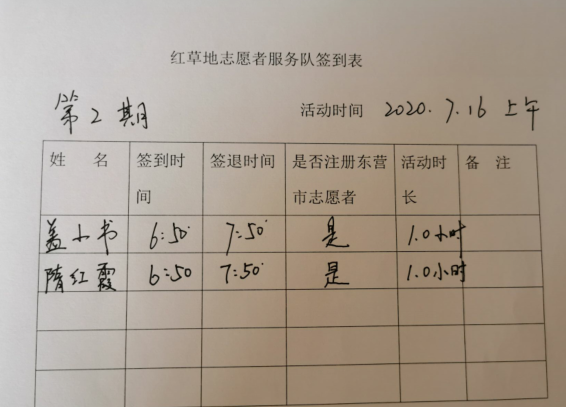 红草地志愿者服务队签到表
第2期 活动时间 2020.7.16 上午
姓 名 签到时间 签退时间 是否注册东营市志愿者 活动时长 备 注
盖小书 6:50 7:50 是 1.0小时
隋红霞 6:50 7:50 是 1.0小时